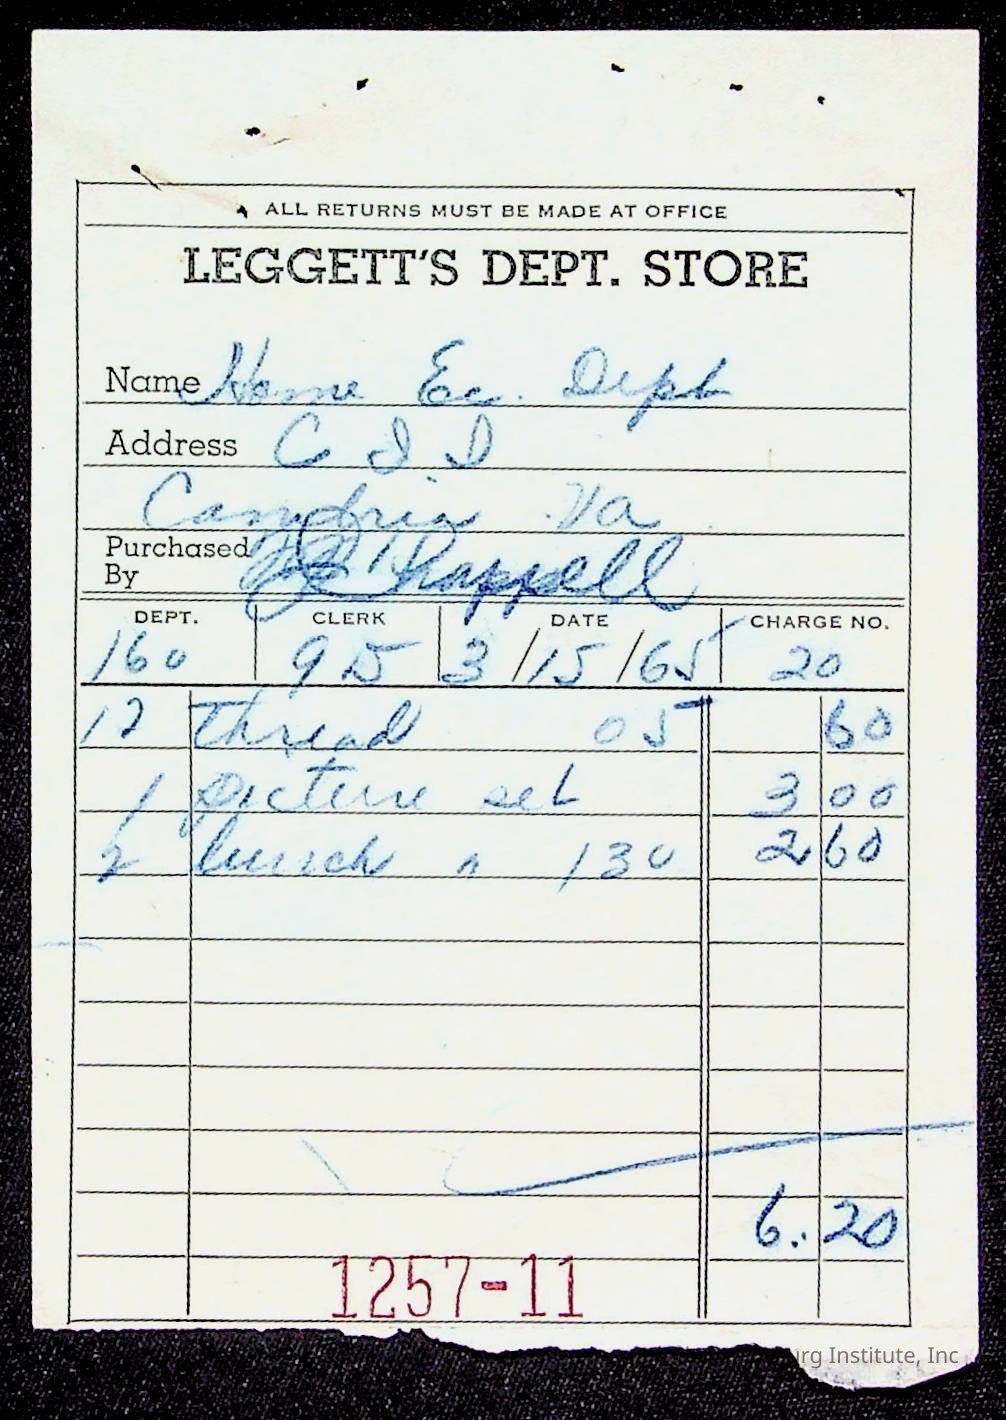 ALL RETURNS MUST BE MADE AT OFFICE
LEGGETT'S DEPT. STORE
Name Home Ec. Dept
Address C I I
Cambria Va
Purchased By Chappell
DEPT. CLERK DATE CHARGE NO.
160 95 3/15/65 20
12 thread 05 60
1 picture set 3 00
2 lunch " 130 2 60
6.20
1257-11
urg Institute, Inc